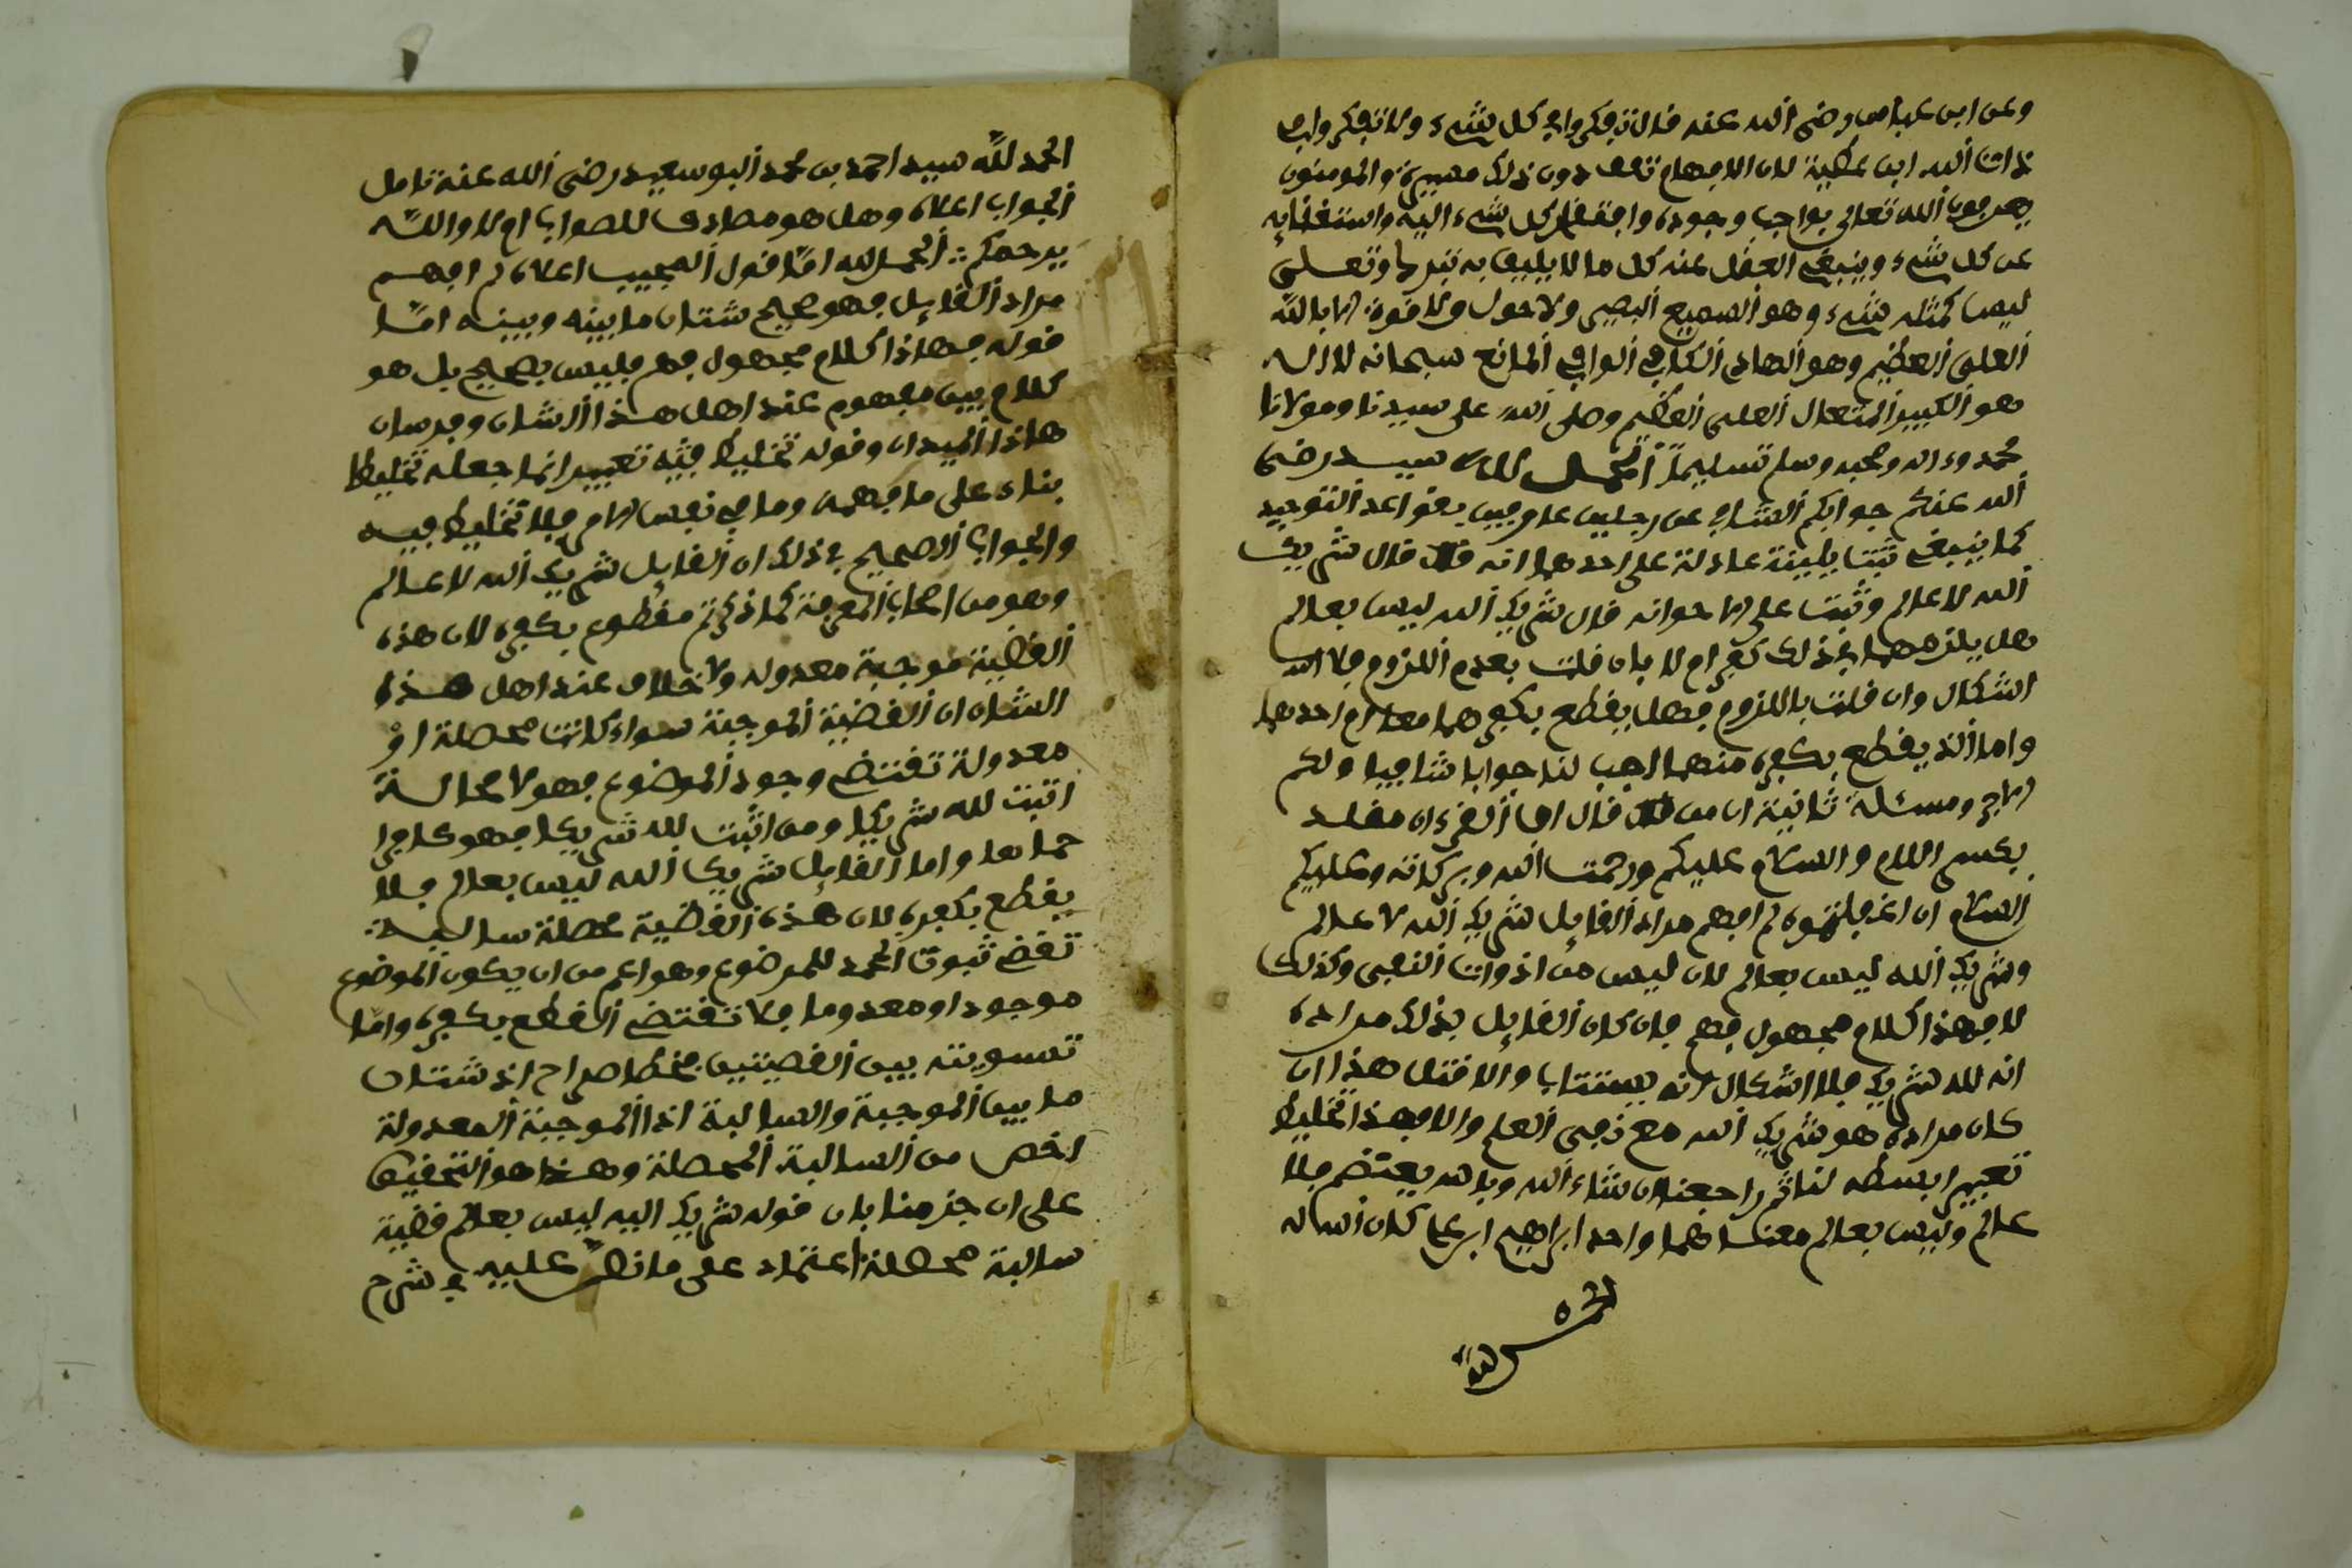 وعن ابن عباس رضي الله عنه قال تفكروا في كل شيء ولا تفكروا في
ذات الله ابن عطية لان الافهام تقف دون ذلك مسيرة والمومنون
يعرفون الله تعالى بواجب وجوده وافتقار كل شيء اليه واستغنايه
عن كل شيء وينبغي العقل عنه كل ما لا يليق به تبرك وتعلى
ليس كمثله شيء وهو السميع البصير ولا حول ولا قوة الا بالله
العلي العظيم وهو الهادي الكافي الوافي المانع سبحانه لا اله
هو الكبير المتعال العلي العظيم وصلى الله على سيدنا ومولانا
محمد وءاله وصحبه وسلم تسليما الحمد لله سيد رضي
الله عنكم جوابكم الشافي عن رجلين عارفين بقواعد التوحيد
كما ينبغي ثبتت بينة عادلة على احدهما انه قال شريك
الله لا عالم وثبت على الاخر انه قال شريك الله ليس بعالم
هل يلزمهما في ذلك كفر ام لا فان قلت بعدم اللزوم فلا
اشكال وان قلت باللزوم فهل يقطع بكفرهما معا ام احدهما
واما الذ يقطع بكفره منهما اجب لنا جوابا شافيا ولكم
الاجر ومسئلة ثانية ان من قال ان القرءان مقلد
بكسر اللام والسلام عليكم ورحمت الله وبركاته وعليكم
السلام ان لم افهم مراد القايل شريك الله لا عالم
وشريك الله ليس بعالم لان ليس من ادوات النفي وكذلك
لا فهذا كلام مجهول فهم فان كان القايل بذلك مراده
انه لله شريك فلا اشكال انه يستتاب والا قتل هذا ان
كان مراده هو شريك الله مع نفي العلم والا فهذا تخليط
تعبير ابسطه لنا ثم راجعنا ان شاء الله وبالله يعتصم فلا
عالم وليس بعالم معناهما واحد ابراهيم ابن علي كان الله له

الحمد لله سيد احمد بن محمد البوسعيد رضي الله عنه تامل
الجواب اعلاه وهل هو مصادف للصواب ام لا والله
يرحمكم الحمد لله اما قول المجيب اعلاه لم افهم
مراد القايل فهو صحيح شتان ما بينه وبينه اما
قوله فهاذا كلام مجهول فهم فليس بصحيح بل هو
كلام بين مفهوم عند اهل هذا الشان وفرسان
هاذا الميدان وقوله تخليط فيه تعبير انما جعله تخليطا
بناء على ما فهمه وما في نفس الامر فلا تخليط فيه
والجواب الصحيح في ذلك ان القايل شريك الله لا عالم
وهو من اصحاب المعرفة كما ذكرتم مقطوع بكفره لان هذه
القضية موجبة معدوله ولا خلاف عند اهل هذا
الشان ان القضية الموجبة سواء كانت محصلة او
معدولة تقتضي وجود الموضوع فهو لا محالة
اثبت لله شريكا ومن اثبت لله شريكا فهو كافر
اجماعا واما القايل شريك الله ليس بعالم فلا
يقطع بكفره لان هذه القضية محصلة سالبة
تقتضي ثبوت للموضوع وهو اعم من ان يكون الموضوع
موجودا او معدوما فلا تقتضي القطع بكفره واما
تسويته بين القضيتين فخطا صراح اذ شتان
ما بين الموجبة والسالبة اذ الموجبة المعدولة
اخص من السالبة المحصلة وهذا هو التحقيق
على ان جزمنا بان قوله شريك اليه ليس بعالم قضية
سالبة محصلة اعتماد على ما نص عليه في شرح